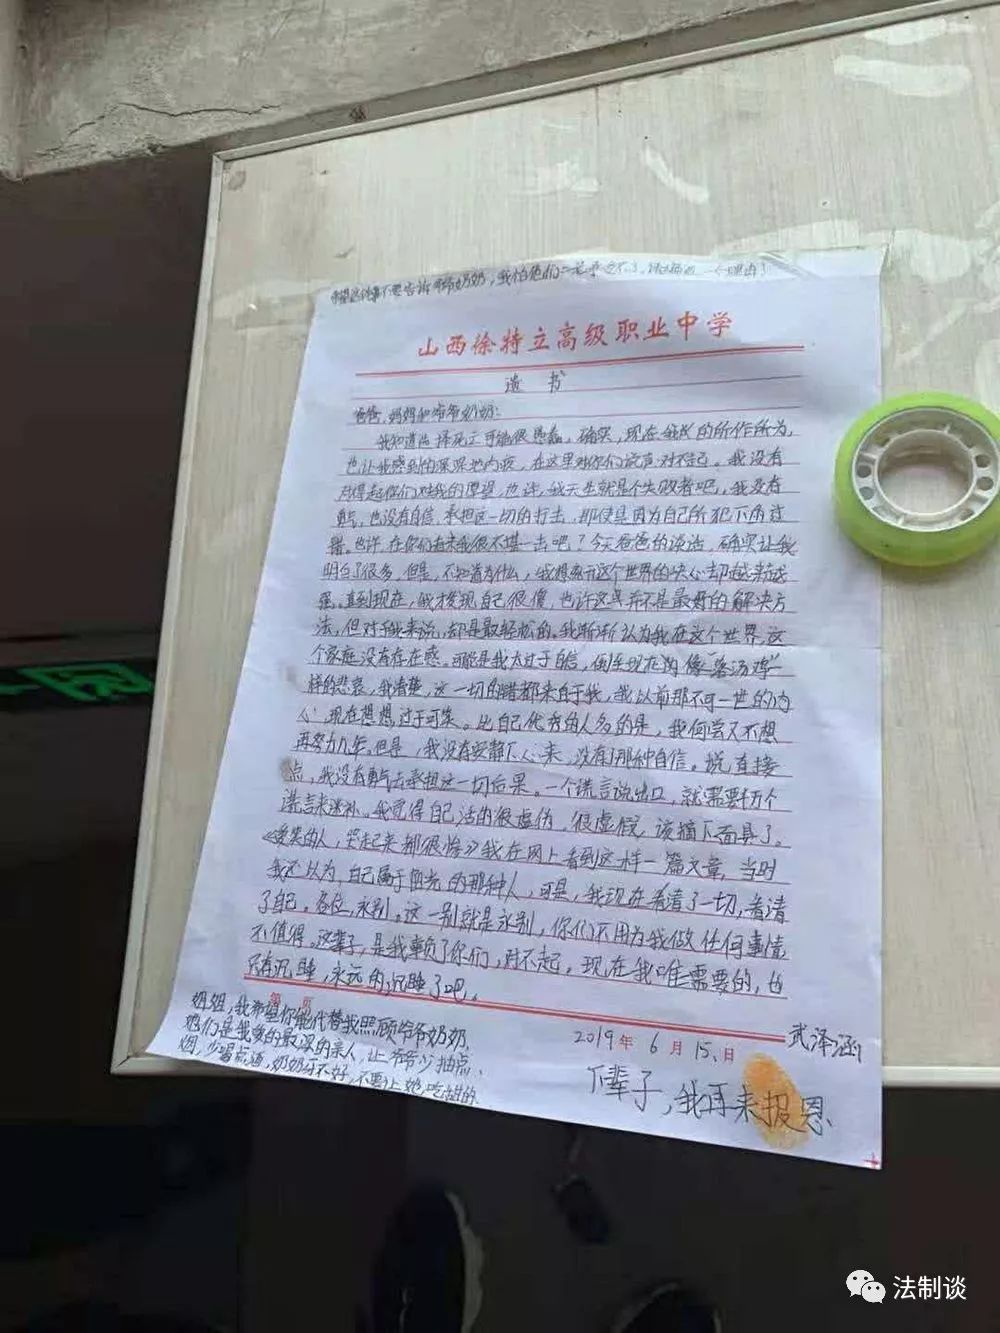 希望这件事不要告诉爷爷奶奶，我怕他们二老承受不了，
山西徐特立高级职业中学
遗 书
爸爸、妈妈和爷爷奶奶：
我知道选择死亡可能很愚蠢，确实，现在我的所作所为，
也让我感到怕深深地内疚，在这里对你们说声，对不起。我没有
对得起你们对我的愿望，也许，我天生就是个失败者吧，我没有
勇气，也没有自信，承担这一切的打击，那便是因为自己所犯下的过
错。也许，在你们看来我很不堪一击吧？今天爸爸的谈话，确实让我
明白了很多，但是，不知道为什么，我想离开这个世界的决心却越来越
强，直到现在，我才发现自己很傻，也许这点并不是最好的解决方
法，但对于我来说，却是最轻松的。我渐渐认为我在这个世界，这
个家庭没有存在感。可能是我太过于自信，倒至现在沟像"落汤鸡"一
样的悲哀，我清楚，这一切的错都来自于我，我以前那不可一世的内
心，现在想想过于可笑。比自己优秀的人多的是，我何尝又不想
再努力几年。但是，我没有安静下心来，没有了那种自信。说直接
点，我没有勇气去承担这一切后果。一个谎言说出口，就需要千万个
谎言来弥补。我觉得自己活的很虚伪，很虚假，该摘下面具了。
《爱笑的人，哭起来都很惨》我在网上看到这样一篇文章，当时
我还以为，自己属于阳光的那种人，可是，我现在看清了一切，看清
了自己。各位，永别。这一别就是永别，你们不用为我做任何事情
不值得。这辈子，是我辜负了你们，对不起。现在我唯一需要的，也
只有沉睡，永远的沉睡了吧。
第 页
姐姐，我希望你能代替我照顾爷爷奶奶，
他们是我爱的最深的亲人，让爷爷少抽点
烟，少喝点酒，奶奶身不好，不要让她吃甜的
2019年 6月 15日
武泽涵
下辈子，我再来报恩
法制谈